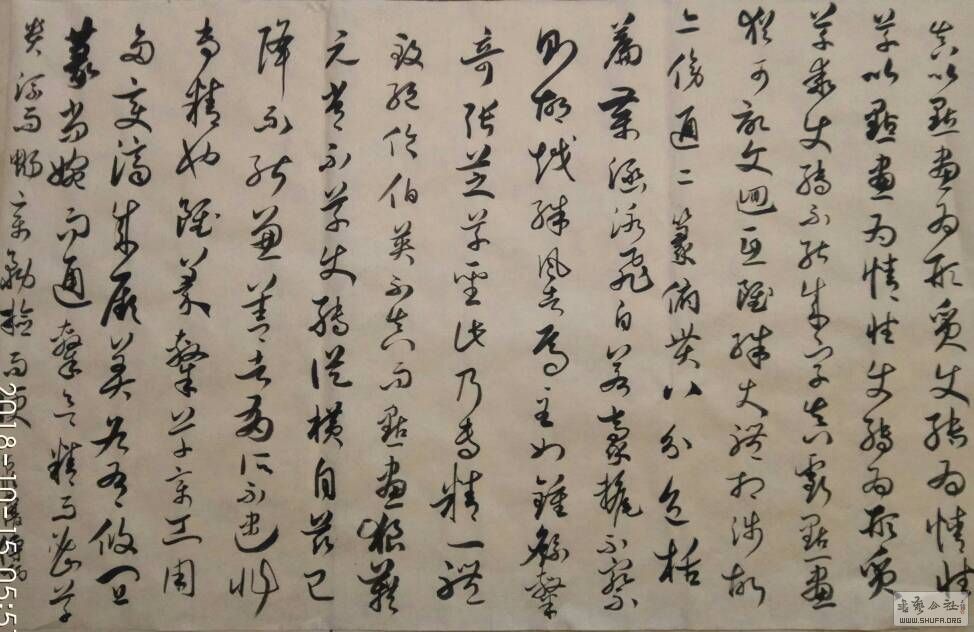 真以點畫為形質使轉為情性
草以點畫為情性使轉為形質
草乖使轉不能成字真虧點畫
猶可記文迴互雖殊大體相涉故
亦傍通二篆俯貫八分包括
篇章涵泳飛白若毫釐不察
則胡越殊風者焉至如鍾繇隸
奇張芝草聖此乃專精一體
致絕倫伯英不真而點畫狼藉
元常不草使轉縱橫自茲已
降不能兼善者有所不逮非
專精也雖篆隸草章工用
多變濟成厥美各有攸宜
篆尚婉而通隸欲精而密草
貴流而暢章務檢而便
2018-10-15 05:5
書藝公社
WWW.SHUFA.ORG